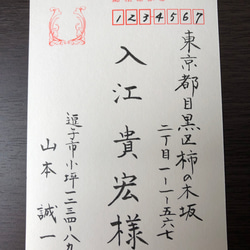 1234567
東京都目黒区柿の木坂
二丁目一-一-五六七
入江貴宏様
逗子市小坪一二三四-八九
山本誠一